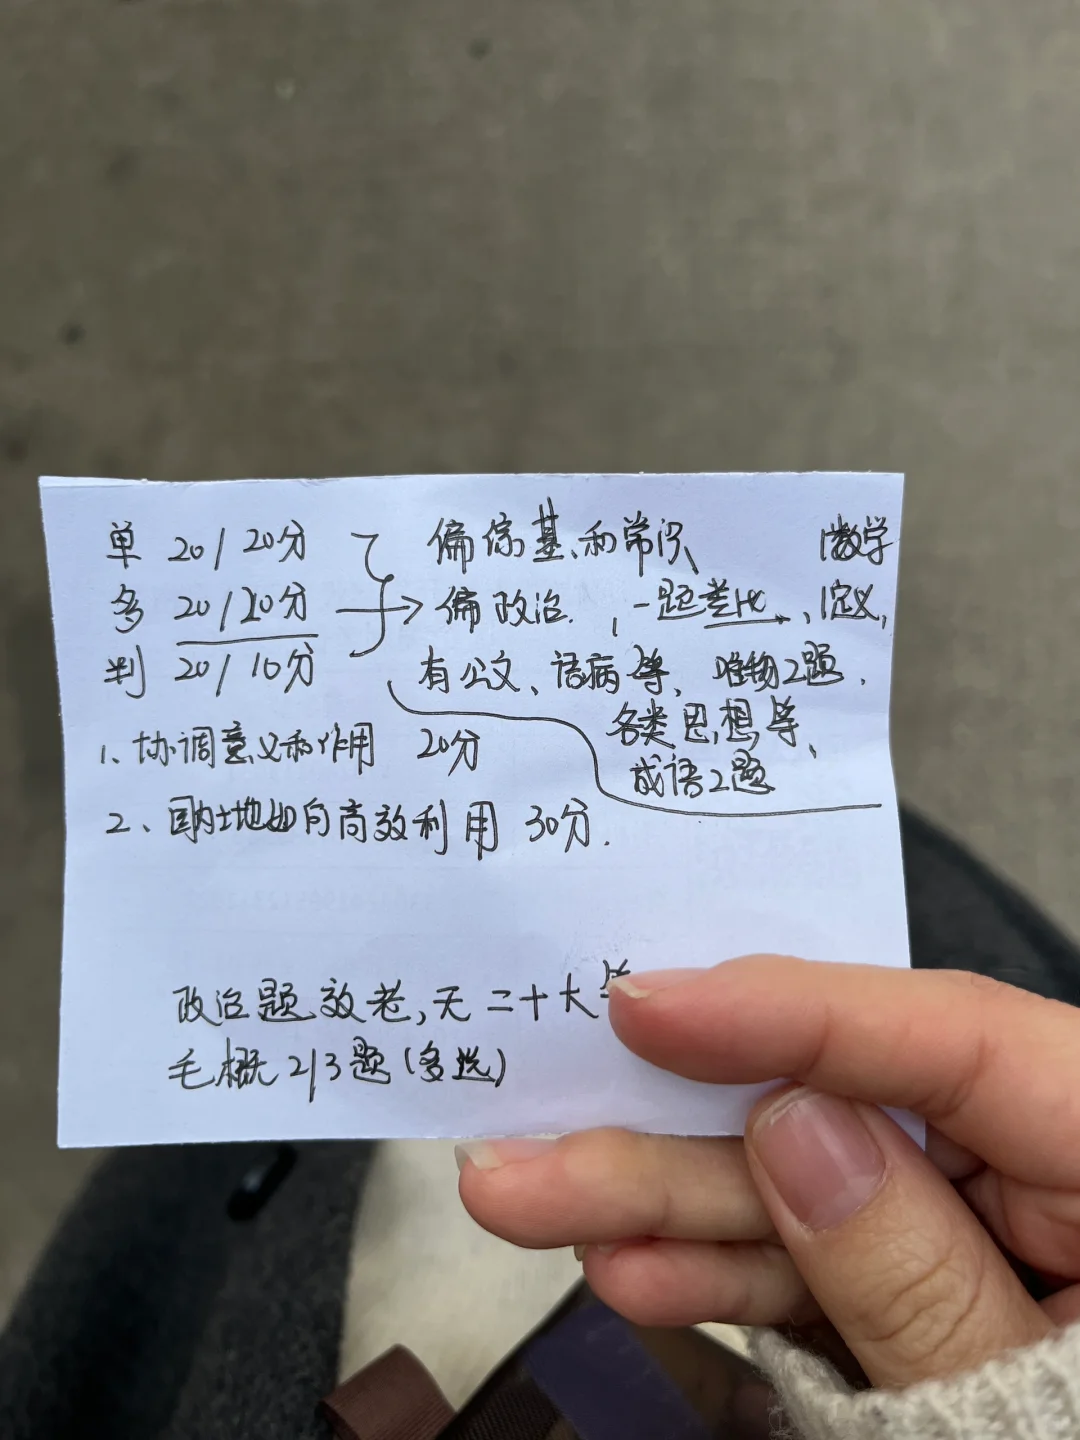 单 20/20分 偏综基、和常识 1数学
多 20/20分 偏政治、一题差比、1定义,
判 20/10分 有公文、语病等、唯物2题.
各类思想等、
1、协调意义和作用 20分
成语2题
2、国内土地如何高效利用 30分.
政治题效老,无二十大等
毛概2/3题(多选)